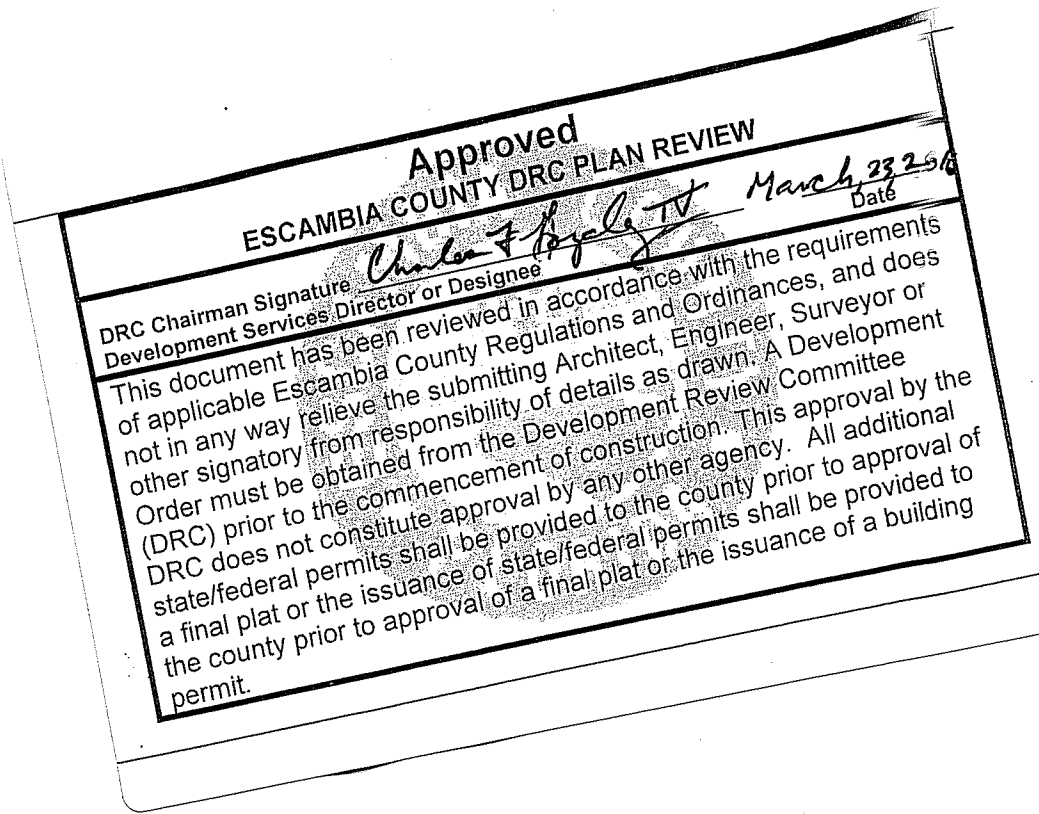 Approved
ESCAMBIA COUNTY DRC PLAN REVIEW
DRC Chairman Signature Charles F IV March, 23, 
Date
Development Services Director or Designee
This document has been reviewed in accordance with the requirements
of applicable Escambia County Regulations and Ordinances, and does
not in any way relieve the submitting Architect, Engineer, Surveyor or
other signatory from responsibility of details as drawn. A Development
Order must be obtained from the Development Review Committee
(DRC) prior to the commencement of construction. This approval by the
DRC does not constitute approval by any other agency. All additional
state/federal permits shall be provided to the county prior to approval of
a final plat or the issuance of state/federal permits shall be provided to
the county prior to approval of a final plat or the issuance of a building
permit.